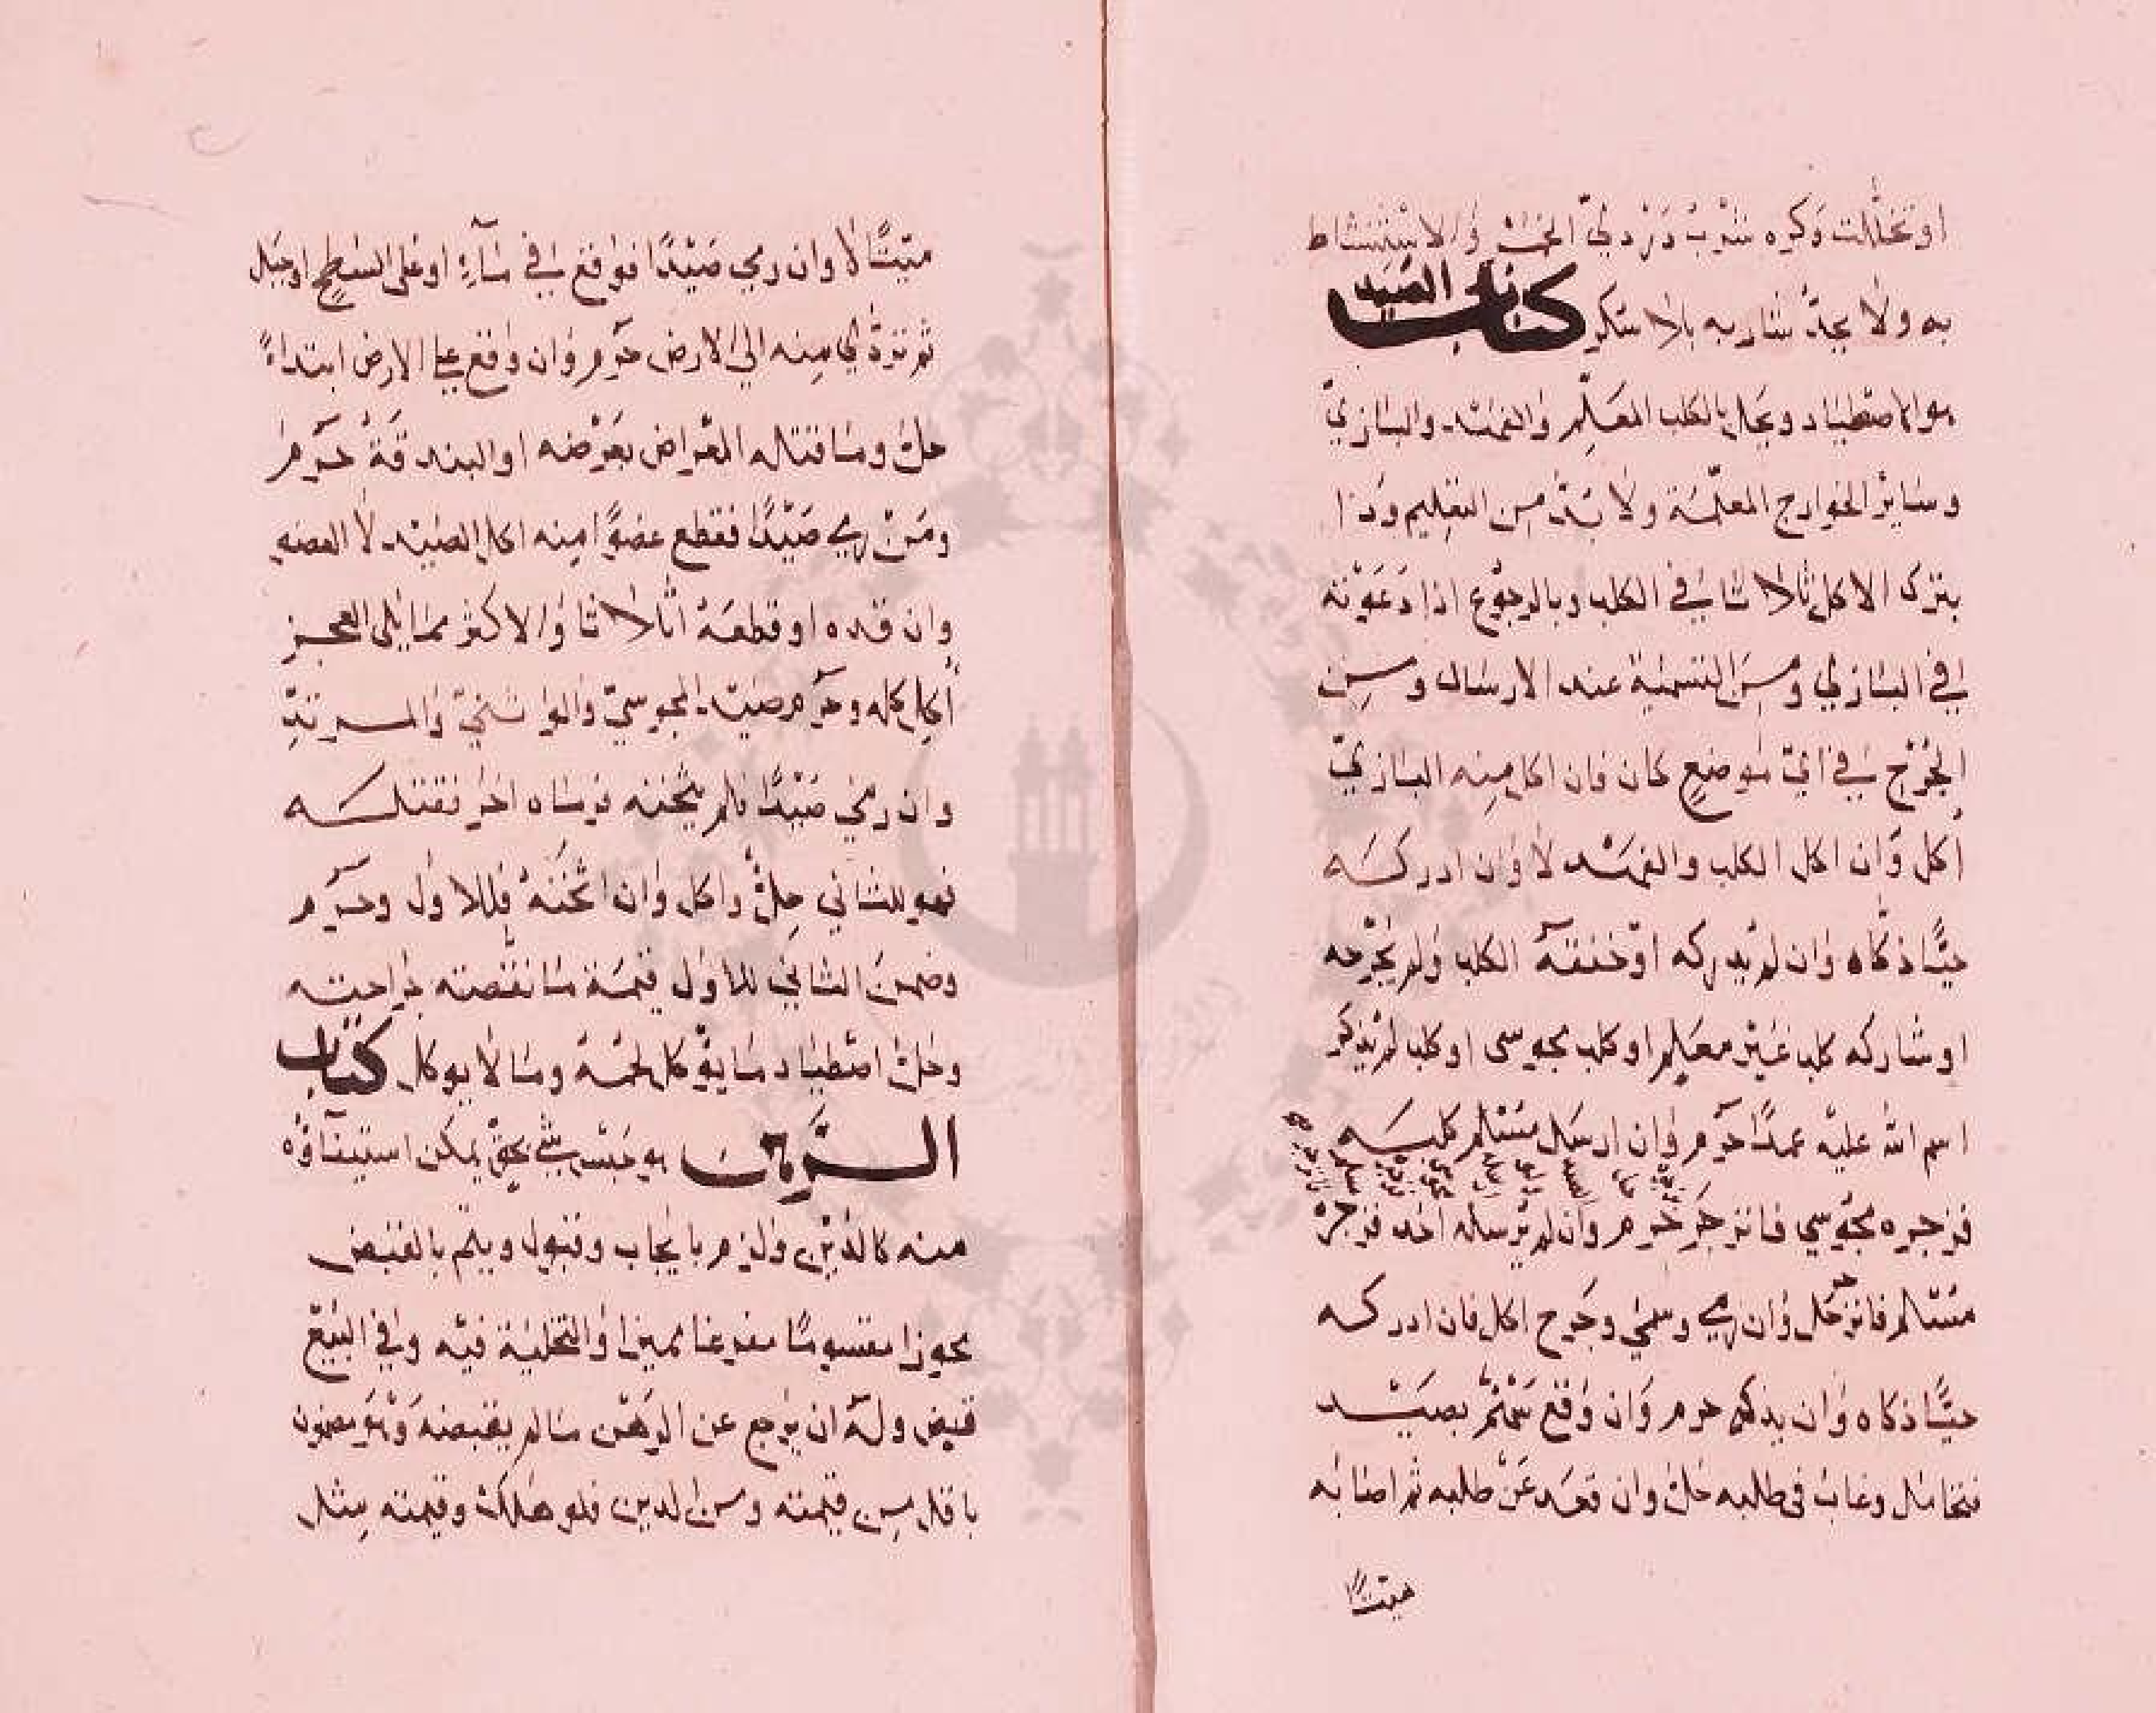 او تخللت وكره شرب دردي الخمر والامتشاط
به ولا يحد شاربه بلا سكر كتاب الصيد
هو الاصطياد ويحل بالكلب المعلم والفهد والبازي
وساير الجوارح المعلمة ولا بد من التعليم وذا
بترك الاكل ثلاثا في الكلب وبالرجوع اذا دعوته
في البازي ومن التسمية عند الارسال ومن
الجرح في اي موضع كان فان اكل منه البازي
اكل وان اكل الكلب والفهد لا وان ادركه
حيا ذكاه وان لم يدركه او خنقه الكلب ولم يجرحه
او شاركه كلب غير معلم او كلب مجوسي او كلب لم يذكر
اسم الله عليه عمدا حرم وان ارسل مسلم كلبه
فزجره مجوسي فانزجر حرم وان لم يرسله احد فزجره
مسلم فانزجر حل وان رمي وسمي وجرح اكل فان ادركه
حيا ذكاه وان يذكه حرم وان وقع سهم بصيد
فتحامل وغاب في طلبه حل وان قعد عن طلبه ثم اصابه
ميتا
ميتا لا وان رمي صيدا فوقع في ماء او على السطح او جبل
ثم تردي منه الي الارض حرم وان وقع علي الارض ابتداء
حل وما قتله المعراض بعرضه او البندقة حرم
ومن رمي صيدا فقطع عضوا منه اكل الصيد لا العضو
وان قده او قطعه اثلاثا والاكثر مما يلي العجز
اكل كله وحرم صيد المجوسي والوثني والمرتد
وان رمي صيدا فلم يثخنه فرماه اخر فقتله
فهو للثاني حل واكل وان اثخنه فللاول وحرم
وضمن الثاني للاول قيمة ما نقصته جراحته
وحل اصطياد ما يؤكل لحمه وما لا يوكل كتاب
الرهن هو حبس شي بحق يمكن استيفاؤه
منه كالدين ولزم بايجاب وقبول ويتم بالقبض
محوزا مقسوما مفرغا مميزا والتخلية فيه وفي البيع
قبض وله ان يرجع عن الرهن مالم يقبضه وهو مضمون
باقل من قيمته ومن الدين فلو هلك وقيمته مثل